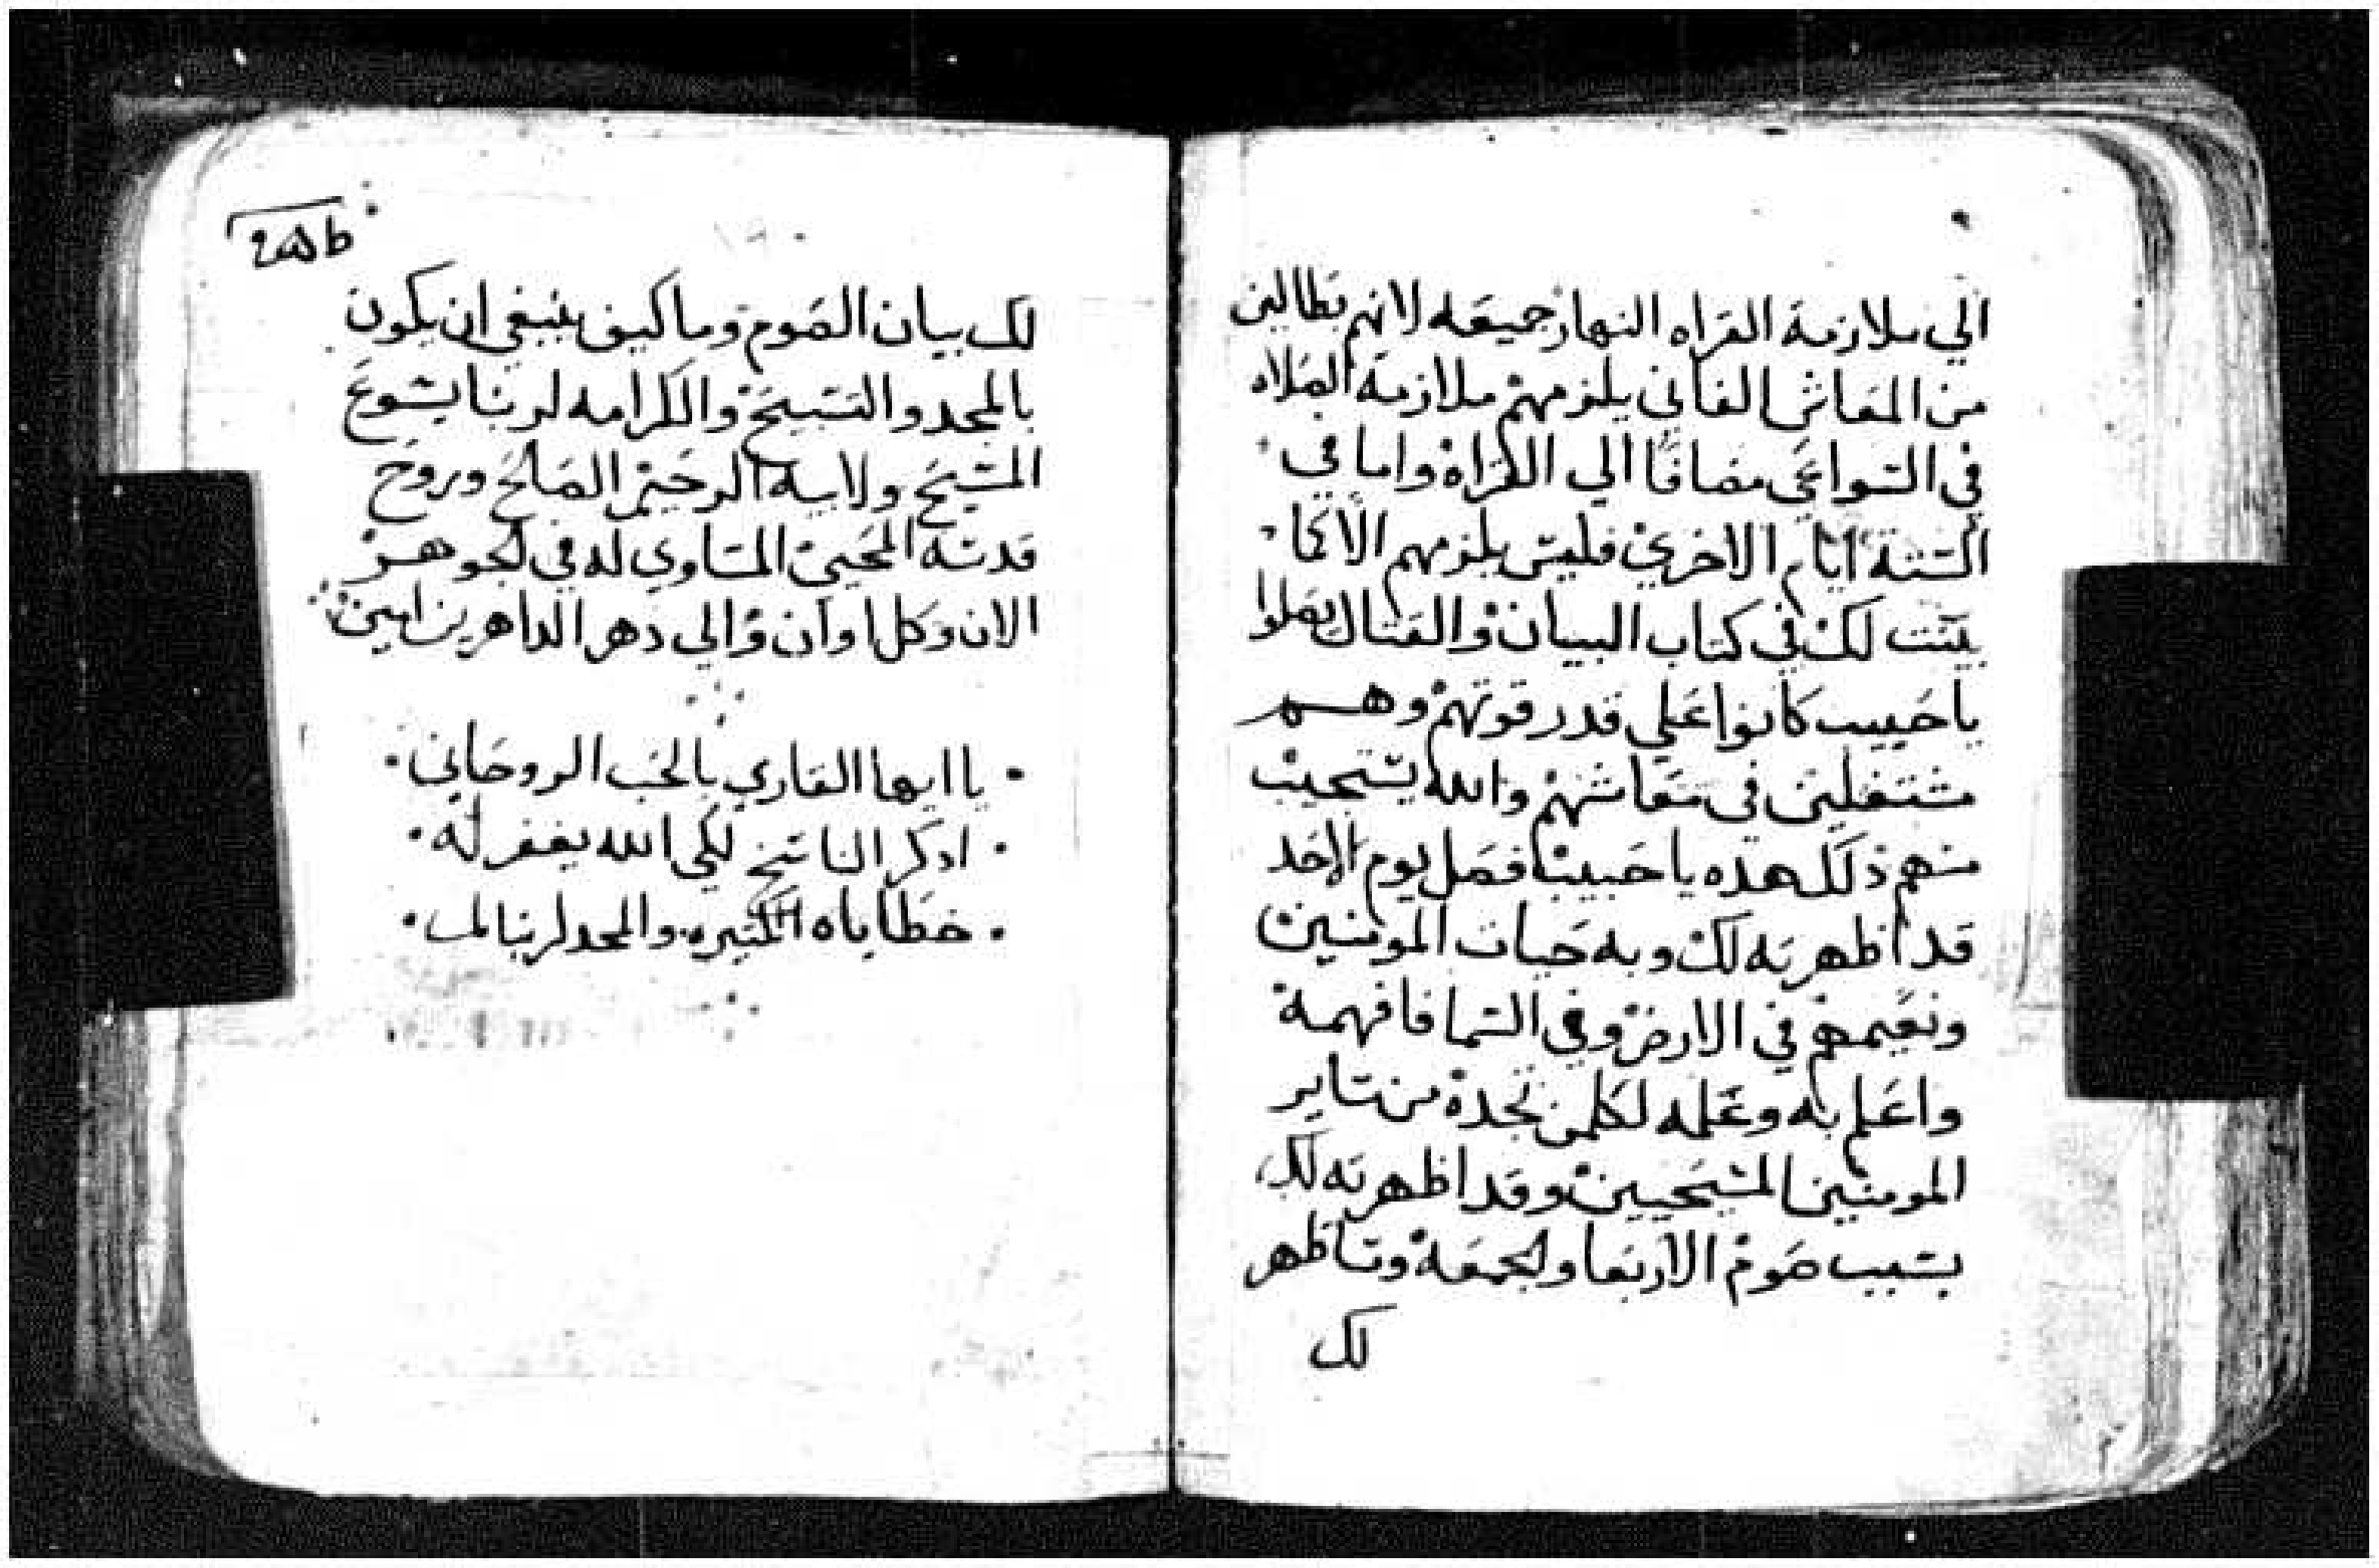 الي ملازمة القراه النهار جميعه لانهم بطالين
من المعاش الفاني يلزمهم ملازمة الصلاه
في السواعي مضافًا الي القراة واما في
الستة ايام الاخري فليس يلزمهم الا كما
بينت لك في كتاب البيان والقتال يصلوا
يا حبيب كانوا علي قدر قوتهم وهم
مشتغلين في معاشهم والله يستجيب
منهم ذلك هده يا حبيبنا فصل يوم الاحد
قد اظهرته لك وبه حيات المومنين
ونعيمهم في الارض وفي السما فافهمة
واعلم به وعلمه لكلمن تجدة من ساير
المومنين المسيحيين وقد اظهرته لك
بسبب صوم الاربعا والجمعة وساظهر
لك
لك بيان الصوم وما كيف ينبغي ان يكون
بالمجد والتسبيح والكرامه لربنا يسوع
المسيح ولابيه الرحيم الصالح وروح
قدسه المحيي المساوي له في الجوهر
الان وكل اوان والي دهر الداهرين امين
يا ايها القاري بالحب الروحاني
ادكر الناسخ لكي الله يغفر له
خطاياه الكتيره والمجد لربنا